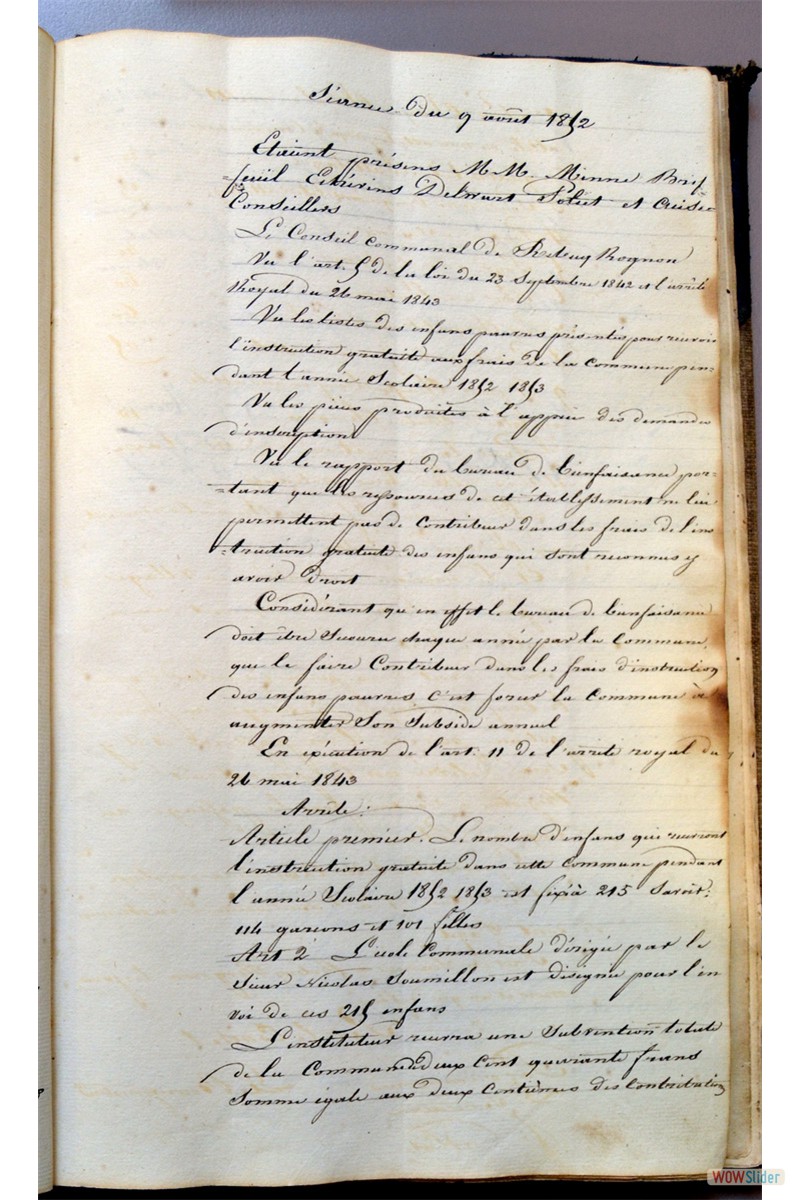 Séance du 9 août 1852
Etaient présens M.M. Minne Brif
=feuil Echévins Delwart Poliet et
Conseillers
Le Conseil communal de Ret Rognon
Vu l'art. 5 de la loi du 23 Septembre 1842 et l'arrêté
Royal du 26 mai 1843
Vu les listes des enfans pauvres présentés pour recevoir
l'instruction gratuite aux frais de la Commune pen-
dant l'année Scolaire 1852 1853
Vu les pièces produites à l'appui des demandes
d'inscription
Vu le rapport du bureau de bienfaisance por-
=tant que les ressources de cet établissement ne lui
permettent pas de Contribuer dans les frais de l'ins
=truction gratuite des enfans qui sont reconnus y
avoir droit
Considérant qu'en effet le bureau de bienfaisance
doit être Secouru chaque année par la Commune,
que le faire Contribuer dans les frais d'instruction
des enfans pauvres c'est forcer la Commune à
augmenter Son Subside annuel
En exécution de l'art. 11 de l'arrêté royal du
26 mai 1843
Arrête :
Article premier. Le nombre d'enfans qui recevront
l'instruction gratuite dans cette Commune pendant
l'année Scolaire 1852 1853 est fixé à 215 Savoir:
114 garçons et 101 filles
Art 2 L'école Communale dirigée par le
Sieur Nicolas Soumillon est désigné pour l'en
voi de ces 215 enfans
L'instituteur recevra une Subvention totale
de la Commune de deux Cent quarante francs
Somme égale aux deux Centièmes des Contributions
WOWSlider